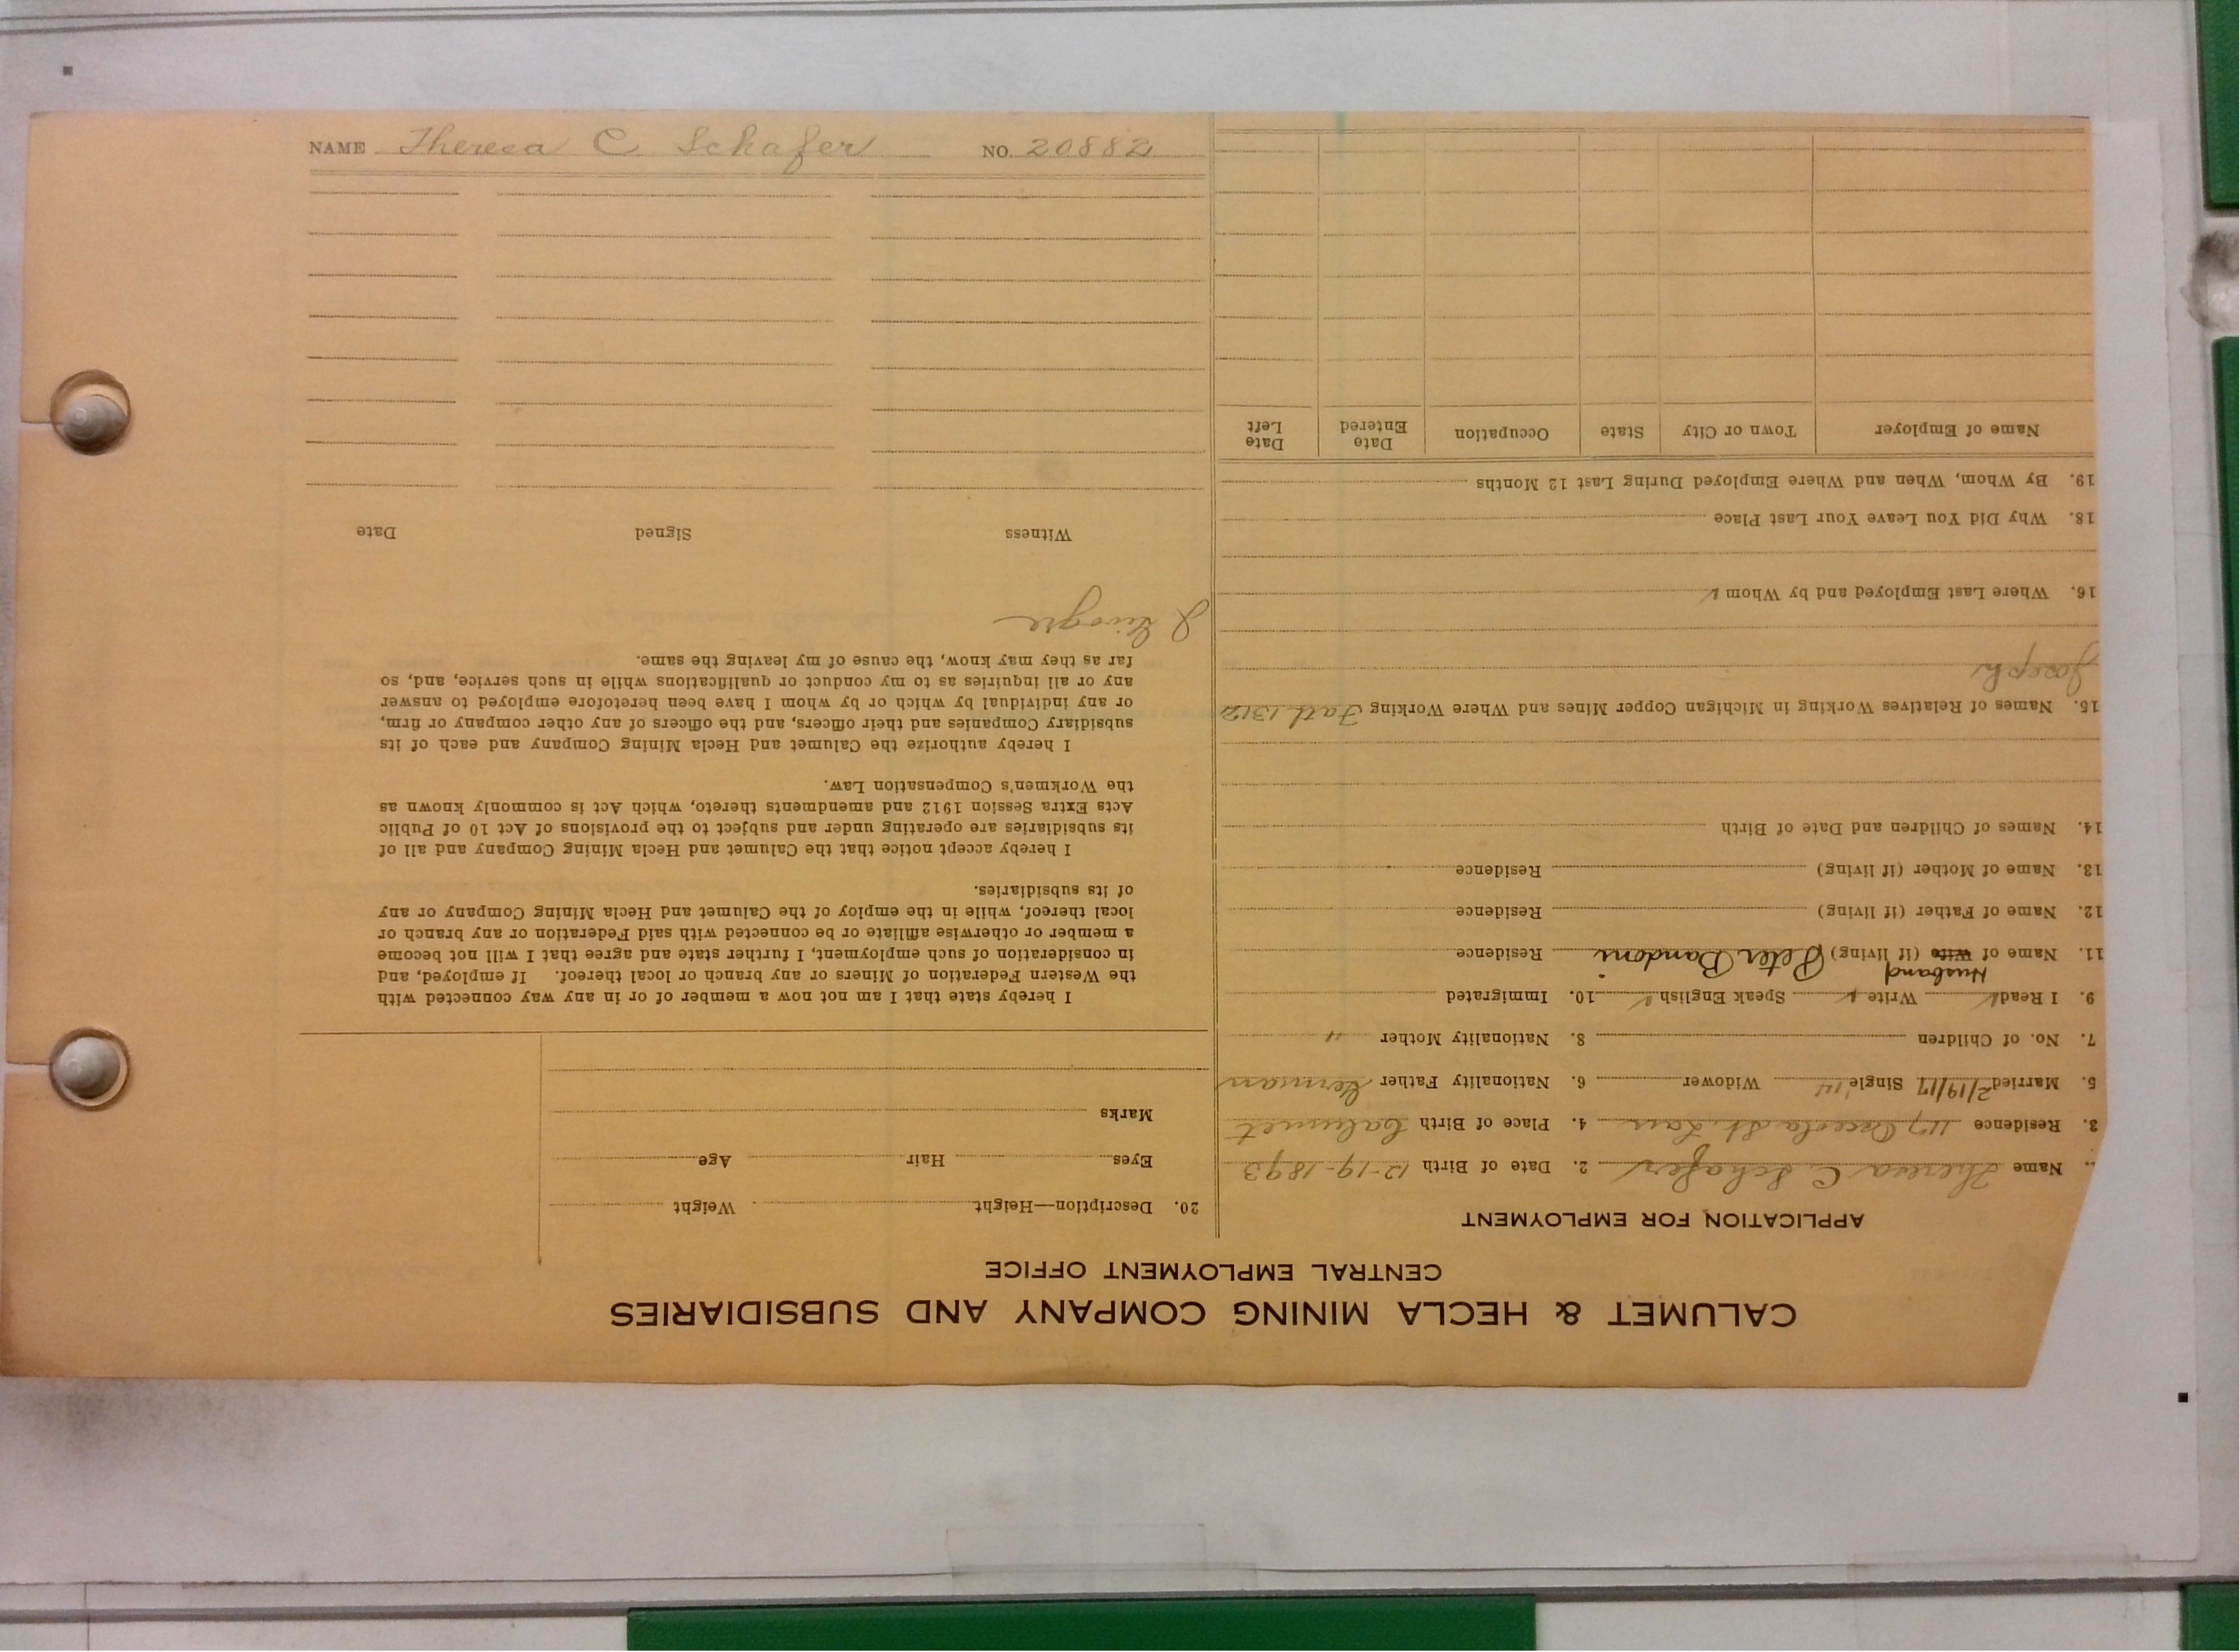 NAME Theresa C Schafer NO. 20882
CALUMET & HECLA MINING COMPANY AND SUBSIDIARIES
CENTRAL EMPLOYMENT OFFICE
APPLICATION FOR EMPLOYMENT
Name Theresa C. Schafer 2. Date of Birth 12-19-1893
3. Residence 117 Osceola St. Laur 4. Place of Birth Calumet
5. Married 2/19/17 Single Widower 6. Nationality Father German
7. No. of Children 8. Nationality Mother "
9. I Read Write Speak English 10. Immigrated
Husband
11. Name of Wife (if living) Peter Bandoni Residence
12. Name of Father (if living) Residence
13. Name of Mother (if living) Residence
14. Names of Children and Date of Birth
15. Names of Relatives Working in Michigan Copper Mines and Where Working Fath 1312
Joseph
16. Where Last Employed and by Whom
18. Why Did You Leave Your Last Place
19. By Whom, When and Where Employed During Last 12 Months
Name of Employer Town or City State Occupation Date Entered Date Left
20. Description—Height Weight
Eyes Hair Age
Marks
I hereby state that I am not now a member of or in any way connected with
the Western Federation of Miners or any branch or local thereof. If employed, and
in consideration of such employment, I further state and agree that I will not become
a member or otherwise affiliate or be connected with said Federation or any branch or
local thereof, while in the employ of the Calumet and Hecla Mining Company or any
of its subsidiaries.
I hereby accept notice that the Calumet and Hecla Mining Company and all of
its subsidiaries are operating under and subject to the provisions of Act 10 of Public
Acts Extra Session 1912 and amendments thereto, which Act is commonly known as
the Workmen's Compensation Law.
I hereby authorize the Calumet and Hecla Mining Company and each of its
subsidiary Companies and their officers, and the officers of any other company or firm,
or any individual by which or by whom I have been heretofore employed to answer
any or all inquiries as to my conduct or qualifications while in such service, and, so
far as they may know, the cause of my leaving the same.
Witness Signed Date